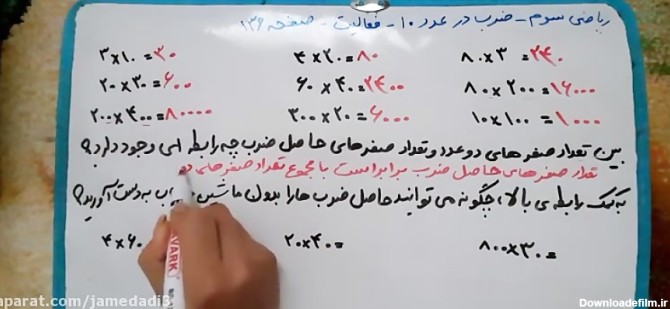 ریاضی سوم - ضرب در عدد ۱۰ - فعالیت - صفحه ۱۳۶
۸۰×۳=۲۴۰
۴×۲۰=۸۰
۳×۱۰=۳۰
۸۰×۲۰۰=۱۶۰۰۰
۶۰×۴۰=۲۴۰۰
۲۰×۳۰=۶۰۰
۱۰×۱۰۰=۱۰۰۰
۳۰۰×۲۰=۶۰۰۰
۲۰۰×۴۰۰=۸۰۰۰۰
بین تعداد صفرهای دو عدد و تعداد صفرهای حاصل ضرب چه رابطه ای وجود دارد؟
تعداد صفرهای حاصل ضرب برابر است با مجموع تعداد صفرهای دو
به کمک رابطه ی بالا، چگونه می توانید حاصل ضرب ها را بدون ماشین به دست آورید؟
۸۰۰×۳۰=
۲۰×۴۰=
۴×۶۰
VARK
aparat.com/jamedadi3
Downloadefilm.ir